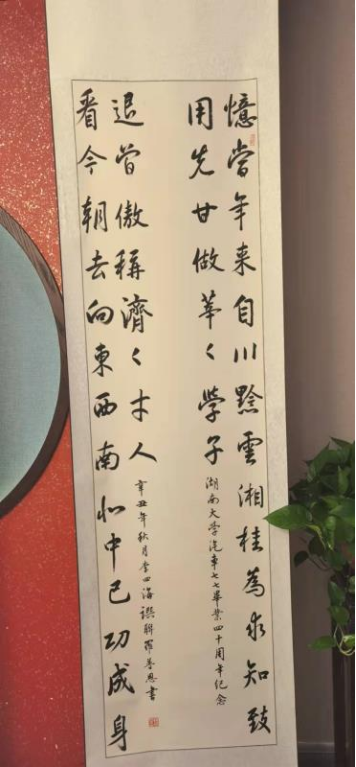 憶當年来自川黔雲湘桂為求知致
用先甘做莘々學子
湖南大学汽車七七畢業四十周年纪念
看今朝去向東西南北中已功成身
退曾傲稱濟々才人
辛丑年秋月李四海撰聯羅恩書